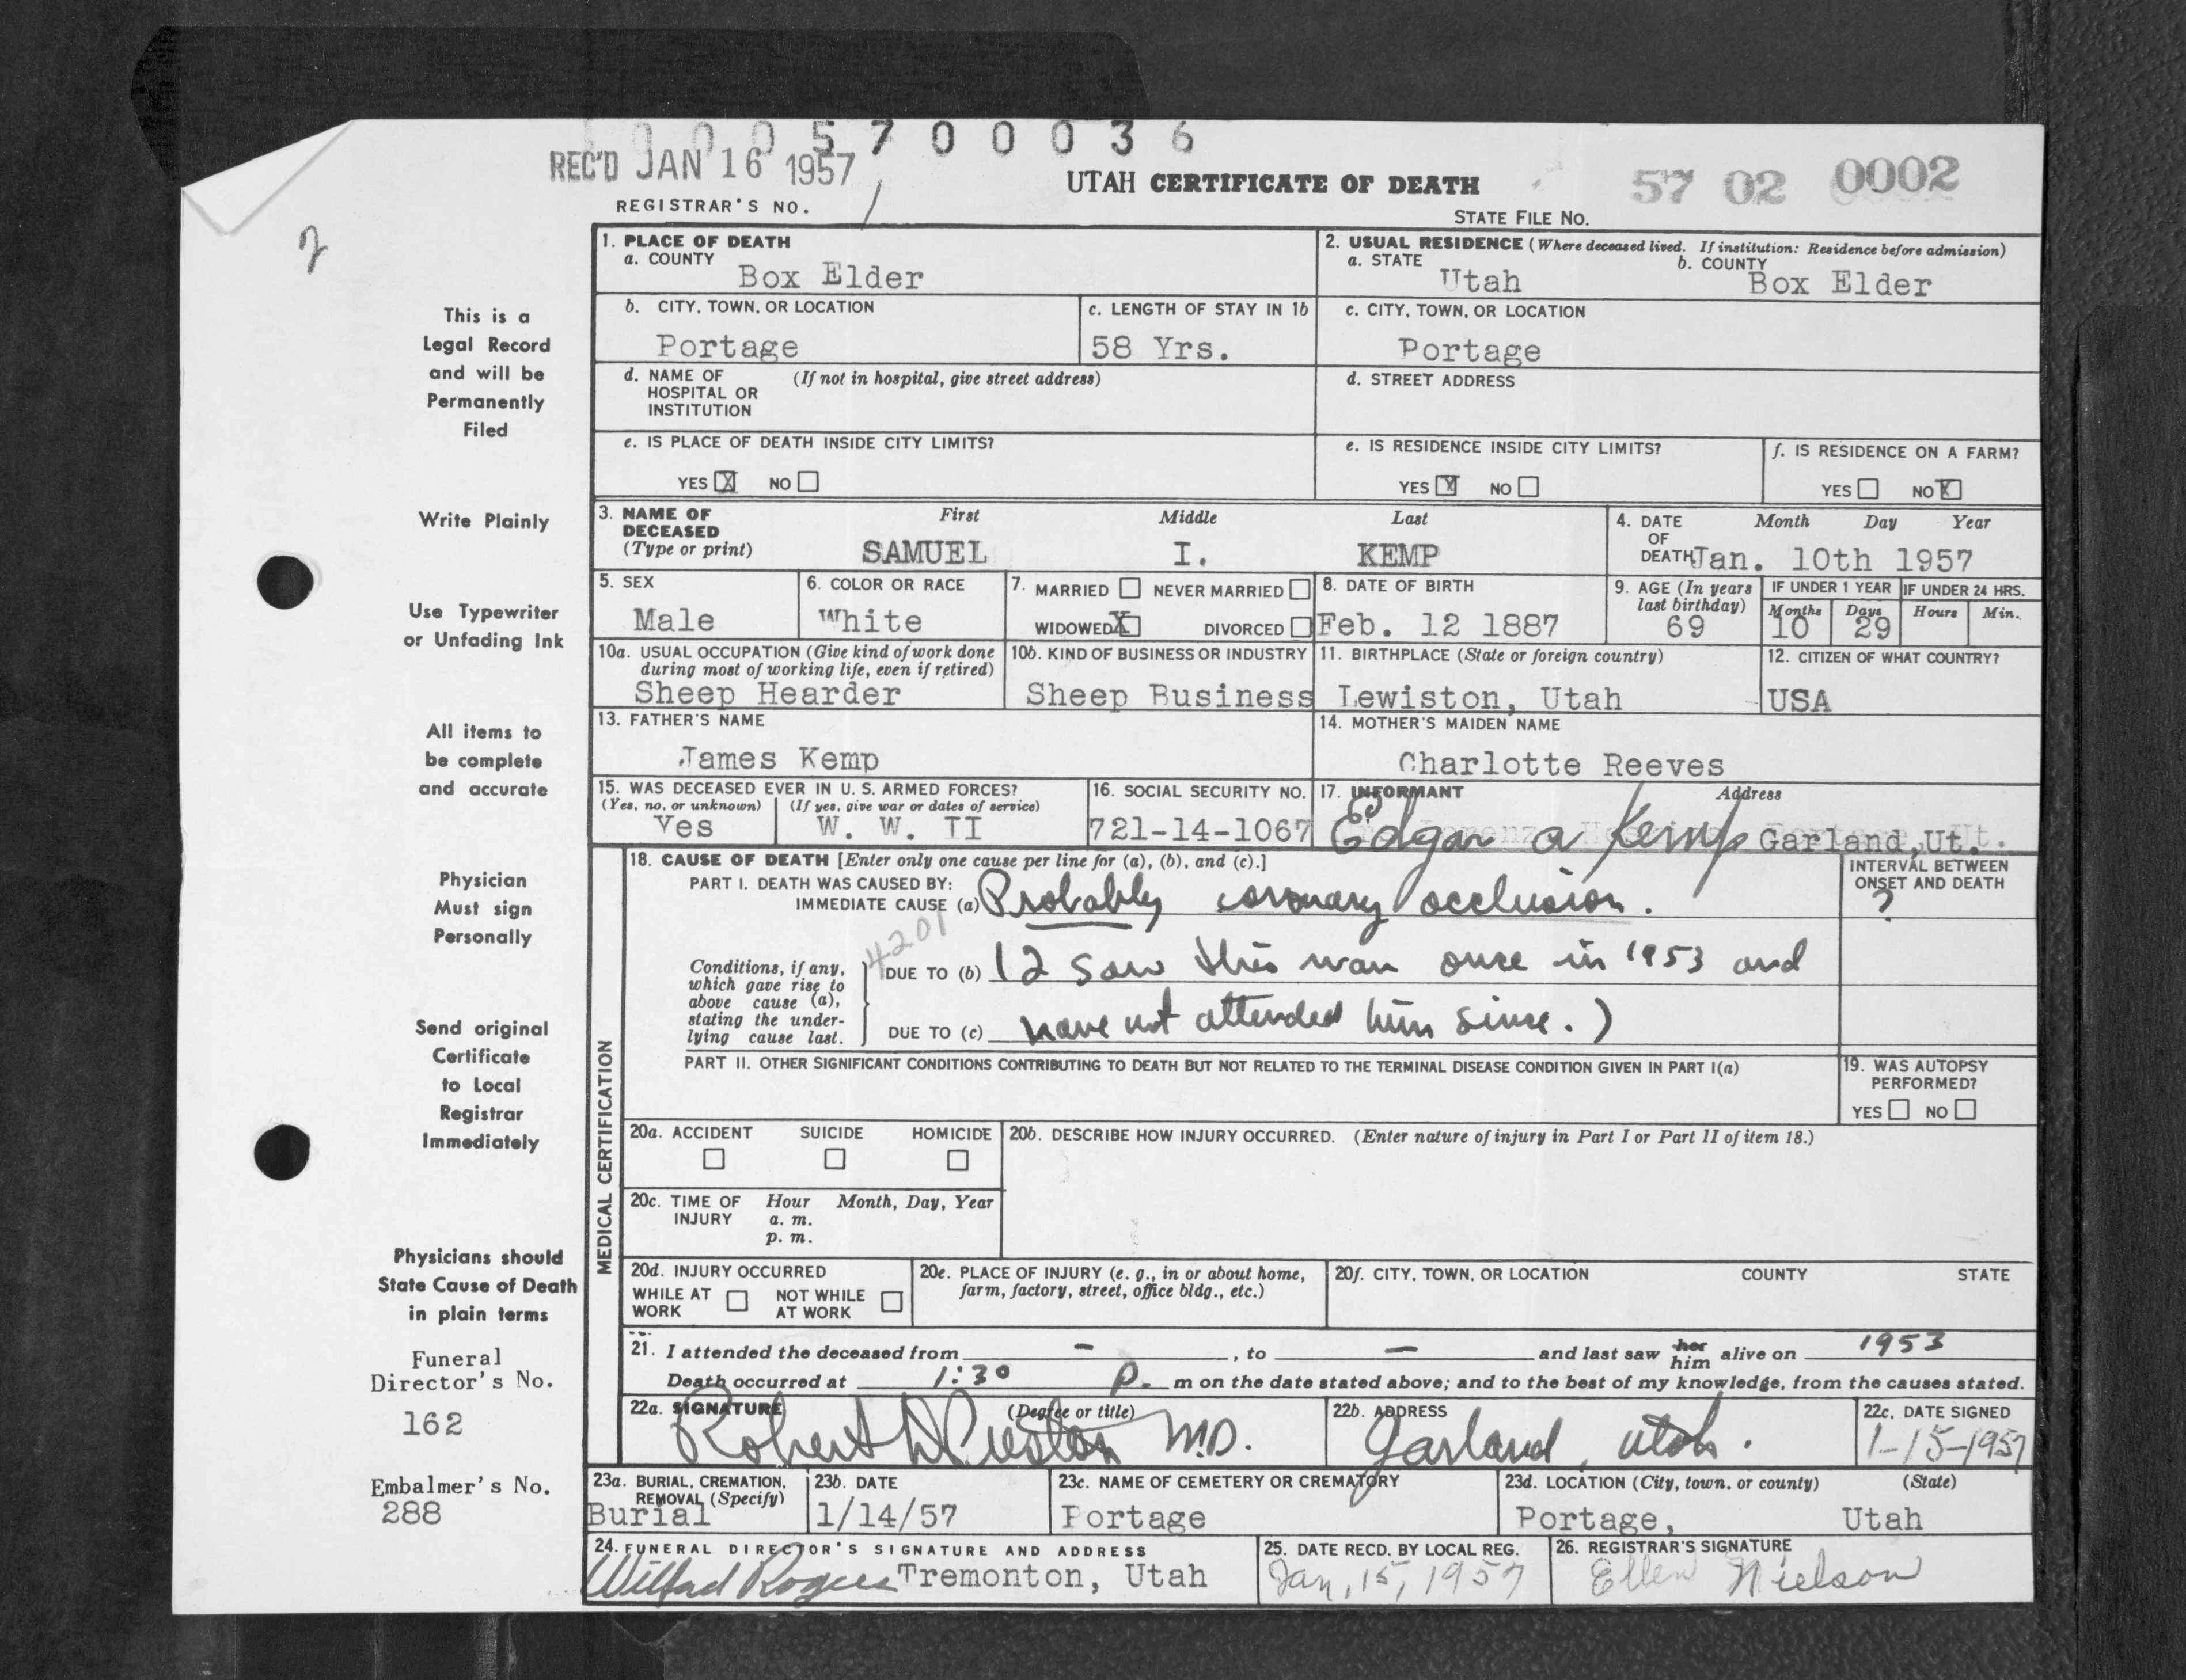 1 0 0 0 5 7 0 0 0 3 6
REC'D JAN 16 1957
UTAH CERTIFICATE OF DEATH
57 02 0002
REGISTRAR'S NO. 1
STATE FILE NO.
2
This is a
Legal Record
and will be
Permanently
Filed
Write Plainly
Use Typewriter
or Unfading Ink
All items to
be complete
and accurate
Physician
Must sign
Personally
Send original
Certificate
to Local
Registrar
Immediately
Physicians should
State Cause of Death
in plain terms
Funeral
Director's No.
162
Embalmer's No.
288
1. PLACE OF DEATH
a. COUNTY
Box Elder
2. USUAL RESIDENCE (Where deceased lived. If institution: Residence before admission)
a. STATE b. COUNTY
Utah Box Elder
b. CITY, TOWN, OR LOCATION
Portage
c. LENGTH OF STAY IN 1b
58 Yrs.
c. CITY, TOWN, OR LOCATION
Portage
d. NAME OF (If not in hospital, give street address)
HOSPITAL OR
INSTITUTION
d. STREET ADDRESS
e. IS PLACE OF DEATH INSIDE CITY LIMITS?
YES X NO
e. IS RESIDENCE INSIDE CITY LIMITS?
YES X NO
f. IS RESIDENCE ON A FARM?
YES NO X
3. NAME OF First Middle Last
DECEASED
(Type or print) SAMUEL I. KEMP
4. DATE Month Day Year
OF
DEATH Jan. 10th 1957
5. SEX
Male
6. COLOR OR RACE
White
7. MARRIED NEVER MARRIED
WIDOWED X DIVORCED
8. DATE OF BIRTH
Feb. 12 1887
9. AGE (In years
last birthday)
69
IF UNDER 1 YEAR
Months Days
10 29
IF UNDER 24 HRS.
Hours Min.
10a. USUAL OCCUPATION (Give kind of work done
during most of working life, even if retired)
Sheep Hearder
10b. KIND OF BUSINESS OR INDUSTRY
Sheep Business
11. BIRTHPLACE (State or foreign country)
Lewiston, Utah
12. CITIZEN OF WHAT COUNTRY?
USA
13. FATHER'S NAME
James Kemp
14. MOTHER'S MAIDEN NAME
Charlotte Reeves
15. WAS DECEASED EVER IN U. S. ARMED FORCES?
(Yes, no, or unknown) (If yes, give war or dates of service)
Yes W. W. TI
16. SOCIAL SECURITY NO.
721-14-1067
17. INFORMANT Address
Edgar a Kemp Garland, Ut.
MEDICAL CERTIFICATION
18. CAUSE OF DEATH [Enter only one cause per line for (a), (b), and (c).]
PART I. DEATH WAS CAUSED BY:
IMMEDIATE CAUSE (a) Probably coronary occlusion.
INTERVAL BETWEEN
ONSET AND DEATH
?
4201
Conditions, if any,
which gave rise to
above cause (a),
stating the under-
lying cause last.
DUE TO (b) (I saw this man once in 1953 and
DUE TO (c) have not attended him since.)
PART II. OTHER SIGNIFICANT CONDITIONS CONTRIBUTING TO DEATH BUT NOT RELATED TO THE TERMINAL DISEASE CONDITION GIVEN IN PART I(a)
19. WAS AUTOPSY
PERFORMED?
YES NO
20a. ACCIDENT SUICIDE HOMICIDE
20b. DESCRIBE HOW INJURY OCCURRED. (Enter nature of injury in Part I or Part II of item 18.)
20c. TIME OF Hour Month, Day, Year
INJURY a. m.
p. m.
20d. INJURY OCCURRED
WHILE AT NOT WHILE
WORK AT WORK
20e. PLACE OF INJURY (e. g., in or about home,
farm, factory, street, office bldg., etc.)
20f. CITY, TOWN, OR LOCATION COUNTY STATE
21. I attended the deceased from - , to - and last saw her him alive on 1953
Death occurred at 1:30 P. m on the date stated above; and to the best of my knowledge, from the causes stated.
22a. SIGNATURE (Degree or title)
Robert M.D.
22b. ADDRESS
Garland, Utah.
22c. DATE SIGNED
1-15-1957
23a. BURIAL, CREMATION,
REMOVAL (Specify)
Burial
23b. DATE
1/14/57
23c. NAME OF CEMETERY OR CREMATORY
Portage
23d. LOCATION (City, town, or county) (State)
Portage, Utah
24. FUNERAL DIRECTOR'S SIGNATURE AND ADDRESS
Wilford Rogers Tremonton, Utah
25. DATE RECD. BY LOCAL REG.
Jan, 15, 1957
26. REGISTRAR'S SIGNATURE
Ellen Nielson